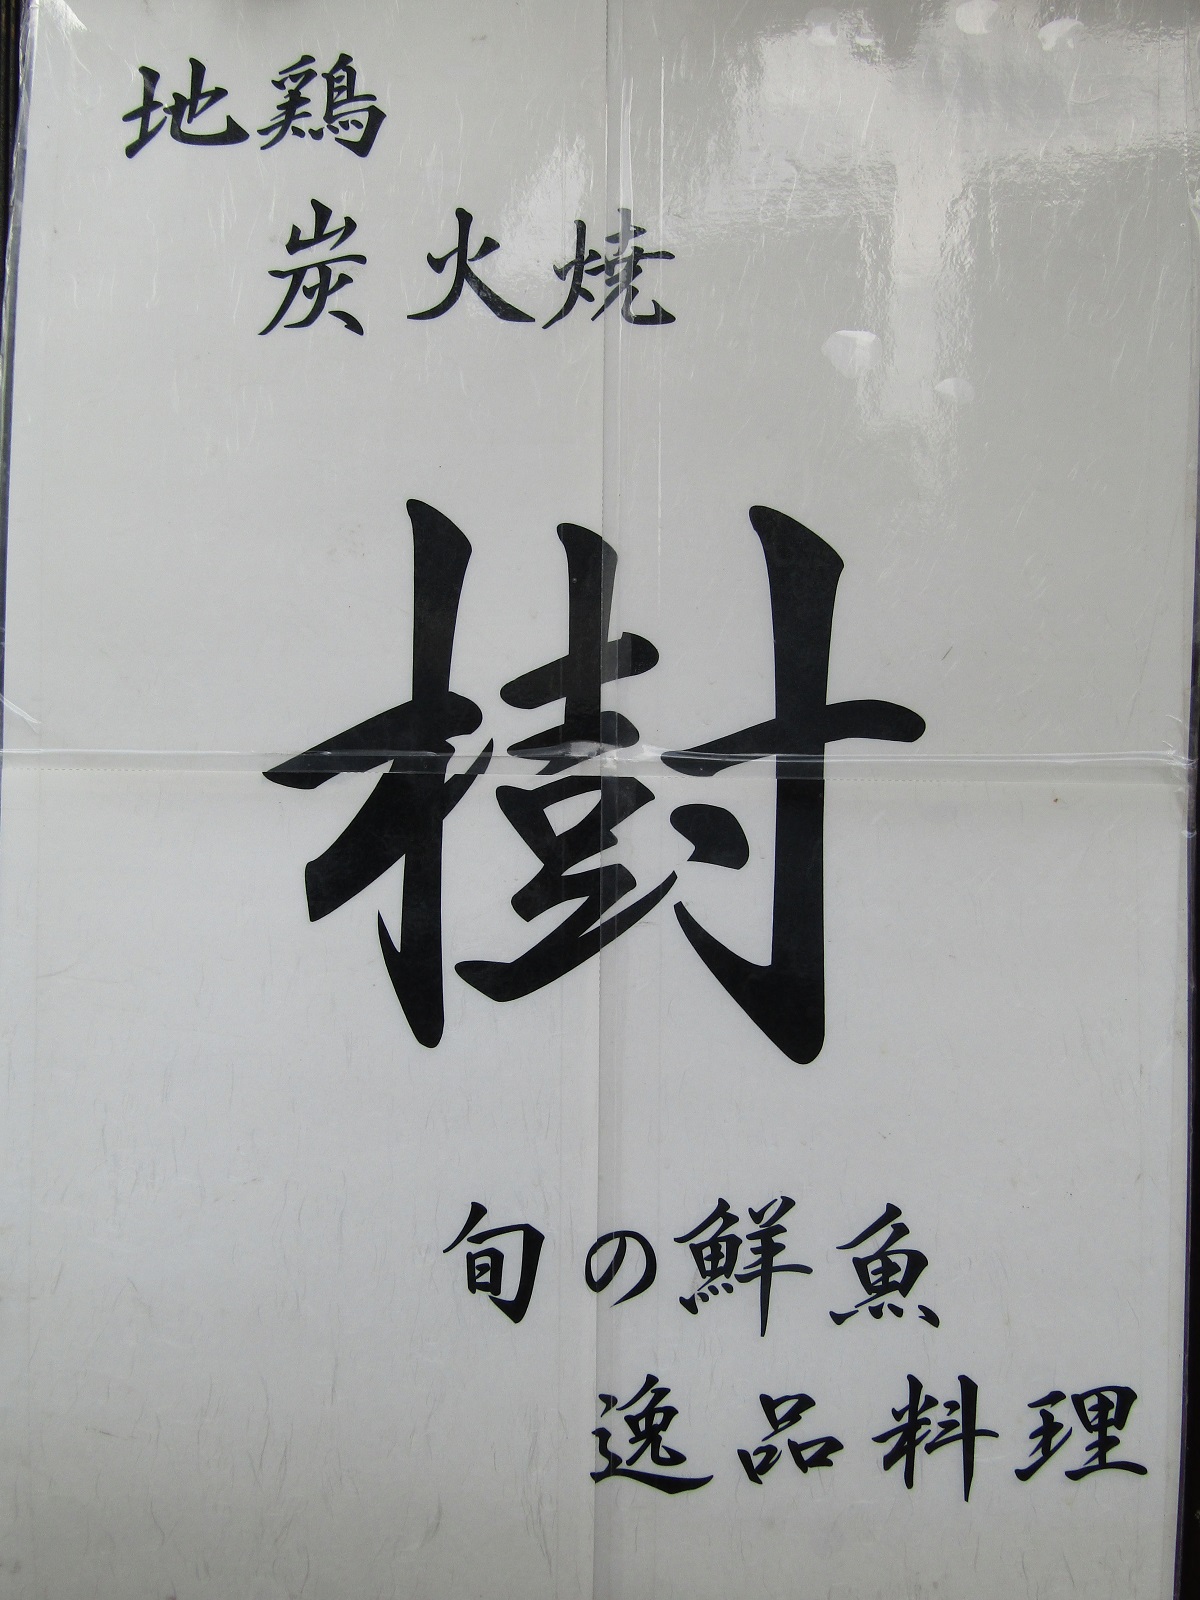 地鶏
炭火焼
樹
旬の鮮魚
逸品料理